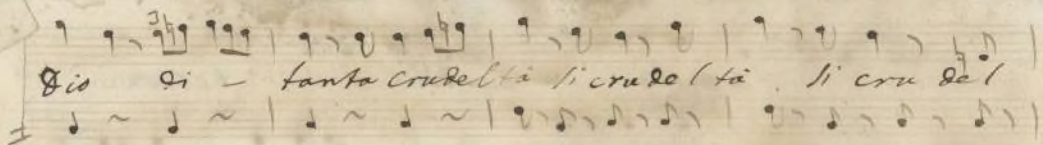 Dio di - tanta crudeltà si crudeltà si crudel